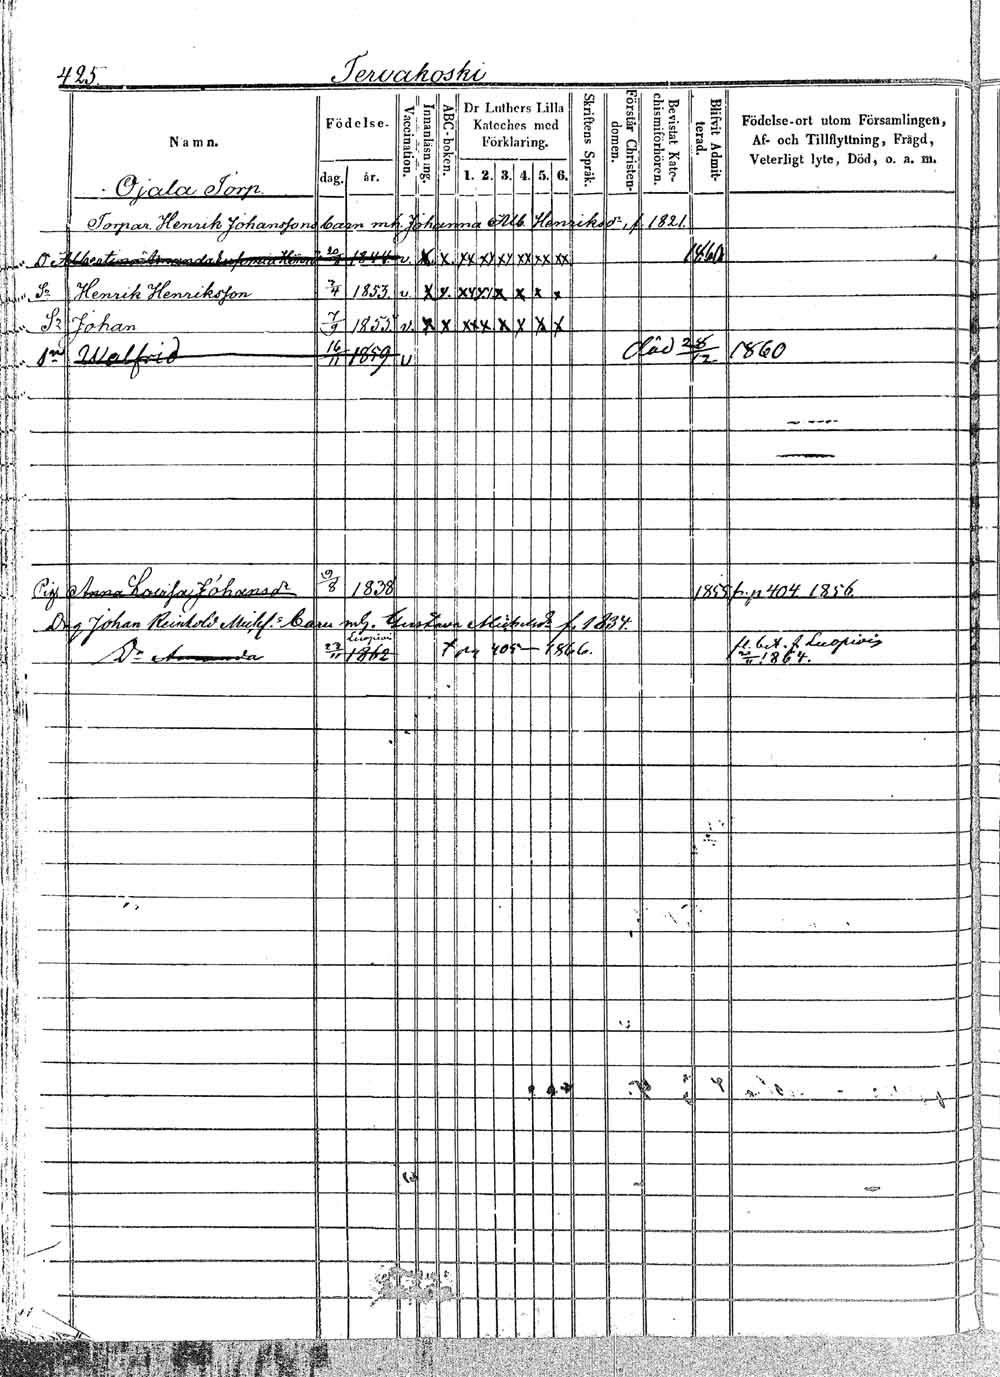 425. Tervakoski
Namn.
Födelse-
dag. år.
Vaccination.
Innanläsning.
ABC-boken.
Dr Luthers Lilla Kateches med Förklaring.
1. 2. 3. 4. 5. 6.
Skriftens Språk.
Förstår Christendomen.
Bevistat Katechismiförhören.
Blifvit Admitterad.
Födelse-ort utom Församlingen,
Af- och Tillflyttning, Frägd,
Veterligt lyte, Död, o. a. m.
Ojala Torp.
Torpar. Henrik Johanssons barn m h. Johanna Alb. Henriksdr, f. 1821.
D. Albertina Amanda 1844 v. x x xx x xx xx xx 1860
Sr Henrik Henriksson 3/4 1853 v x x. xx xx x x x x
Sr Johan 7/9 1855 v. x x xxx x x x x
Sn Walfrid 16/11 1859 v död 28/12 1860
Pig Anna Lovisa Johansdr 19/8 1838 1855 fr. p 404 1856
Drg Johan Reinhold Michs. barn m h. Gustava Michelsdr f. 1834.
Dr Amanda 22/11 Luopiois 1862 t pg 405 1866. fl. bet. f Luopiois
1864.